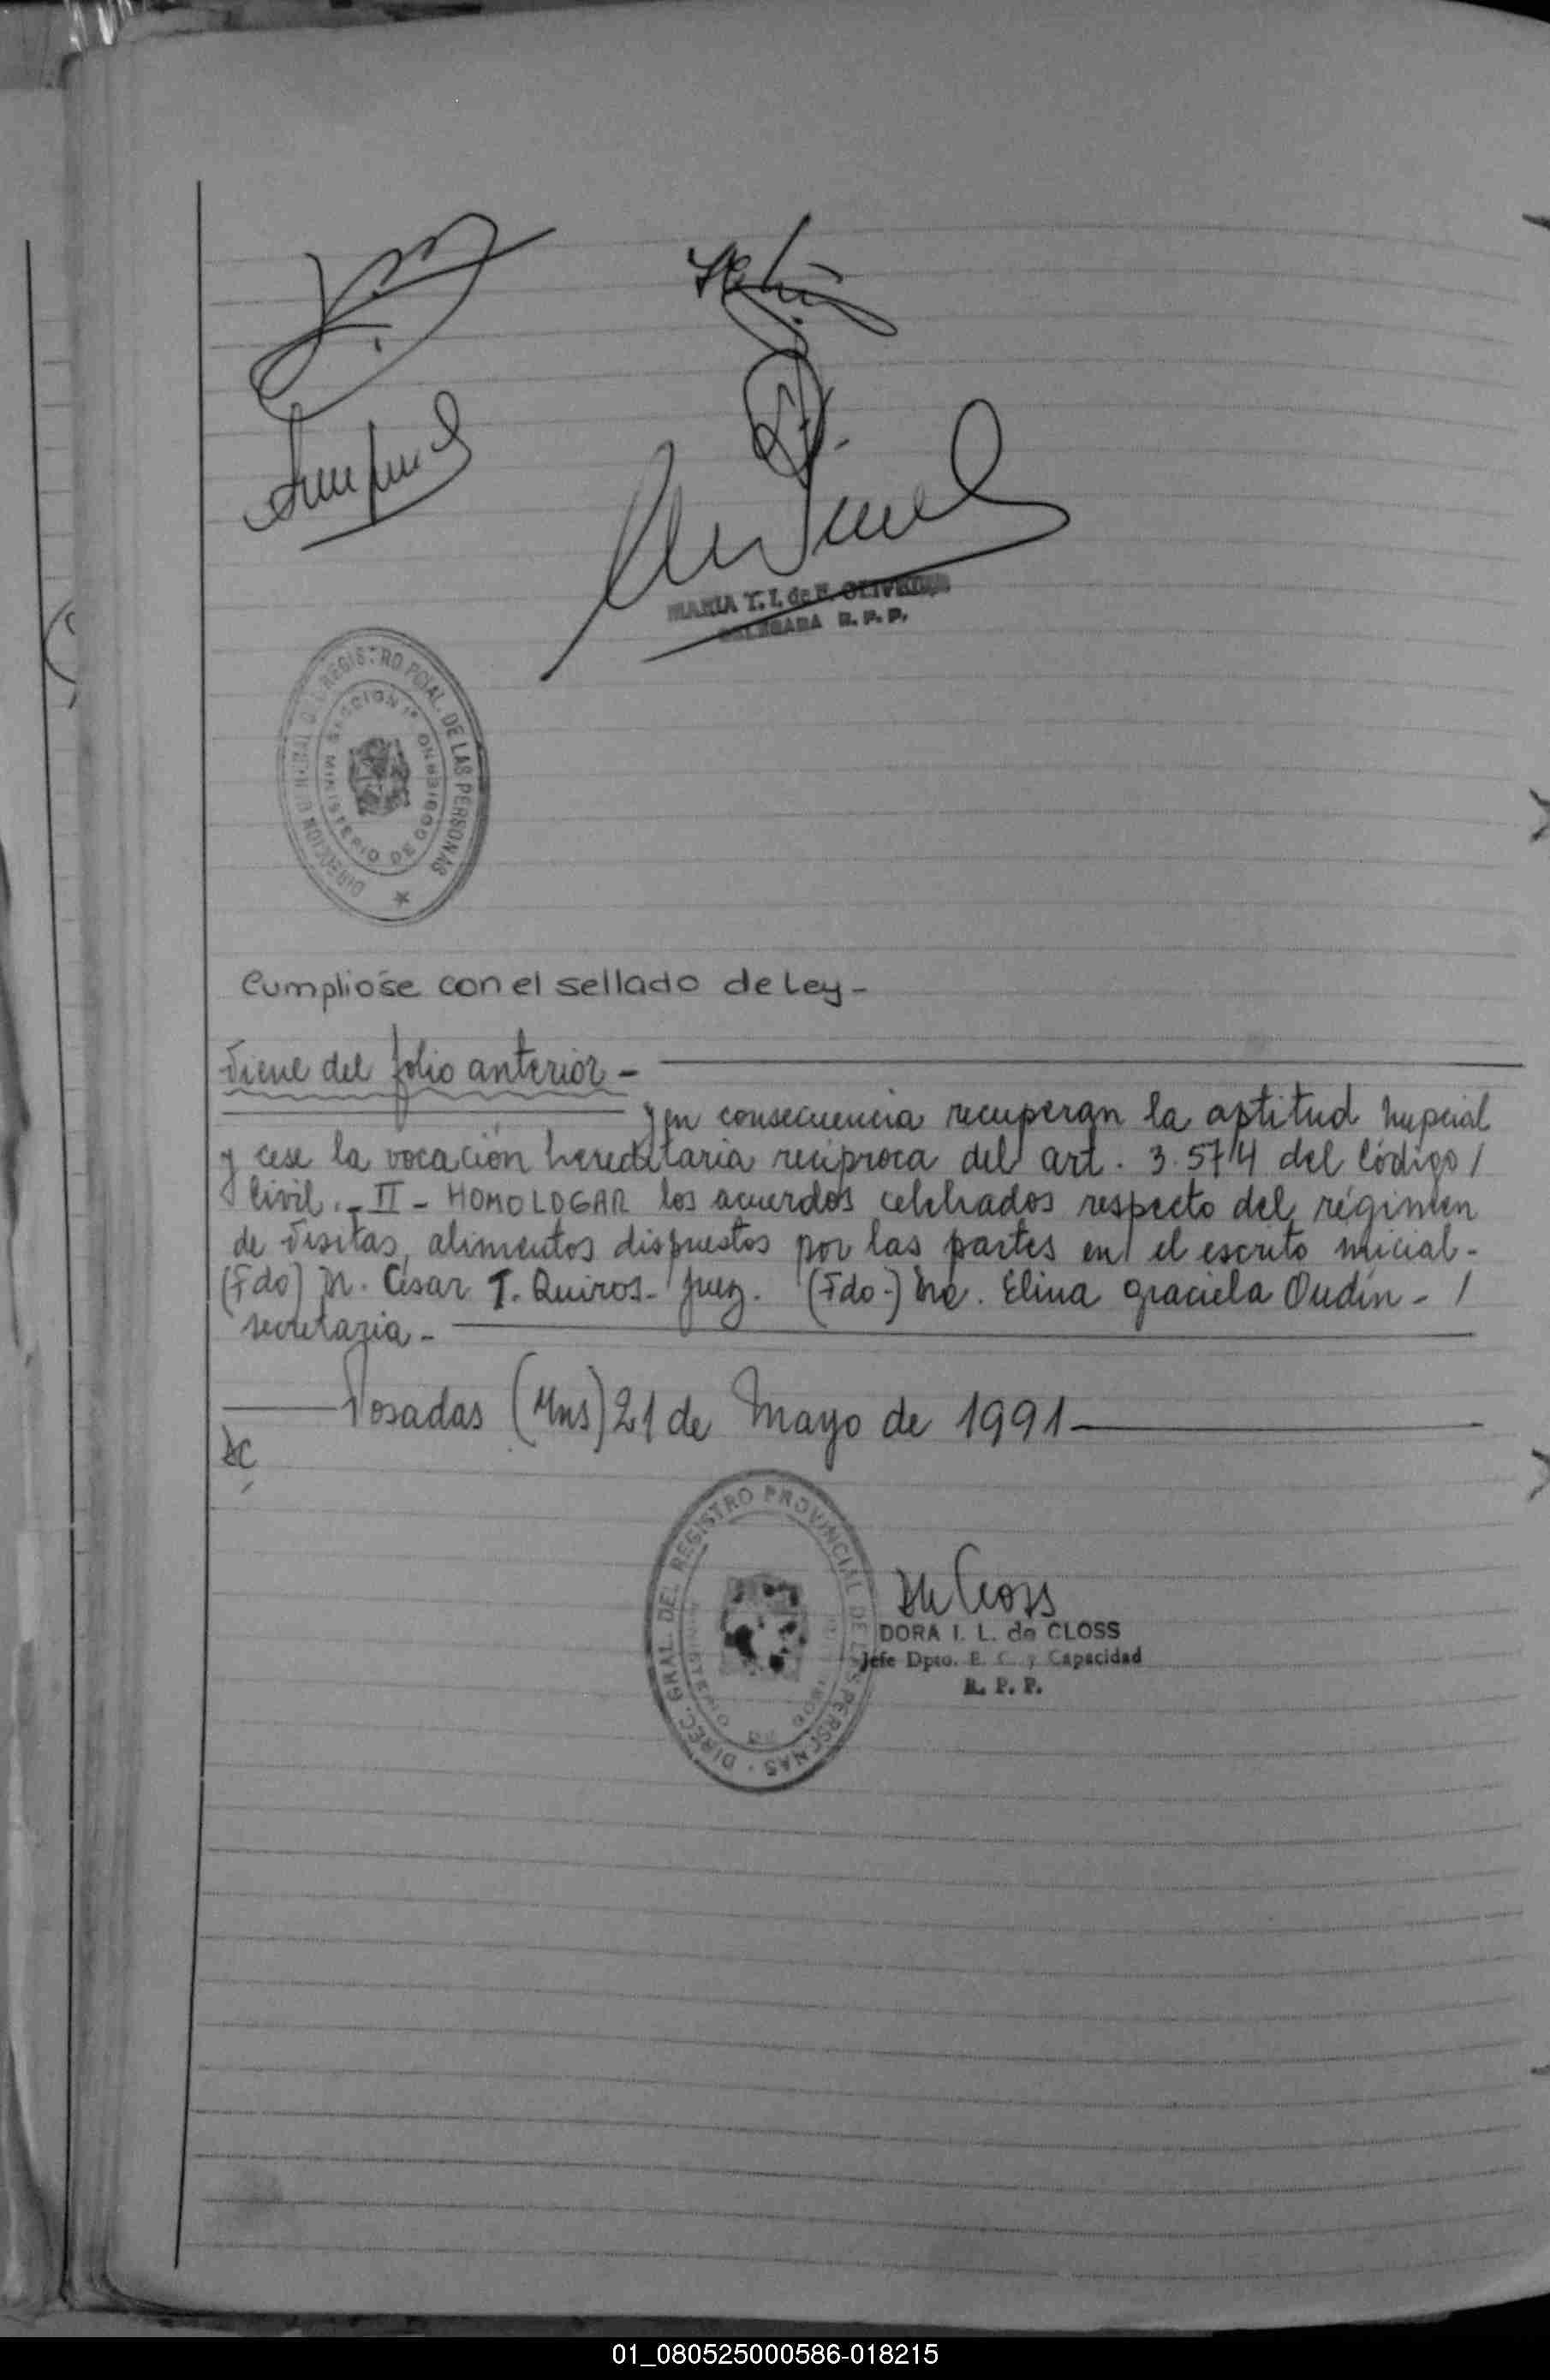 MARIA T. I. de F. OLIVEIRA
DELEGADA R. P. P.
DIRECCION GENERAL DEL REGISTRO PCIAL. DE LAS PERSONAS
SECCION 1ª
MINISTERIO DE GOBIERNO
Cumplióse con el sellado de Ley-
Viene del folio anterior -
y en consecuencia recuperan la aptitud nupcial
y cese la vocación hereditaria recíproca del art. 3.574 del Código /
Civil.- II - HOMOLOGAR los acuerdos celebrados respecto del régimen
de visitas, alimentos dispuestos por las partes en el escrito inicial-
(Fdo) Dr. César T. Quiros- Juez. (Fdo-) Elina Graciela Oudín - /
secretaria -
Posadas (Mns) 21 de Mayo de 1991
DIREC. GRAL. DEL REGISTRO PROVINCIAL DE LAS PERSONAS
DORA I. L. de CLOSS
Jefe Dpto. E. C. y Capacidad
R. P. P.
01_080525000586-018215